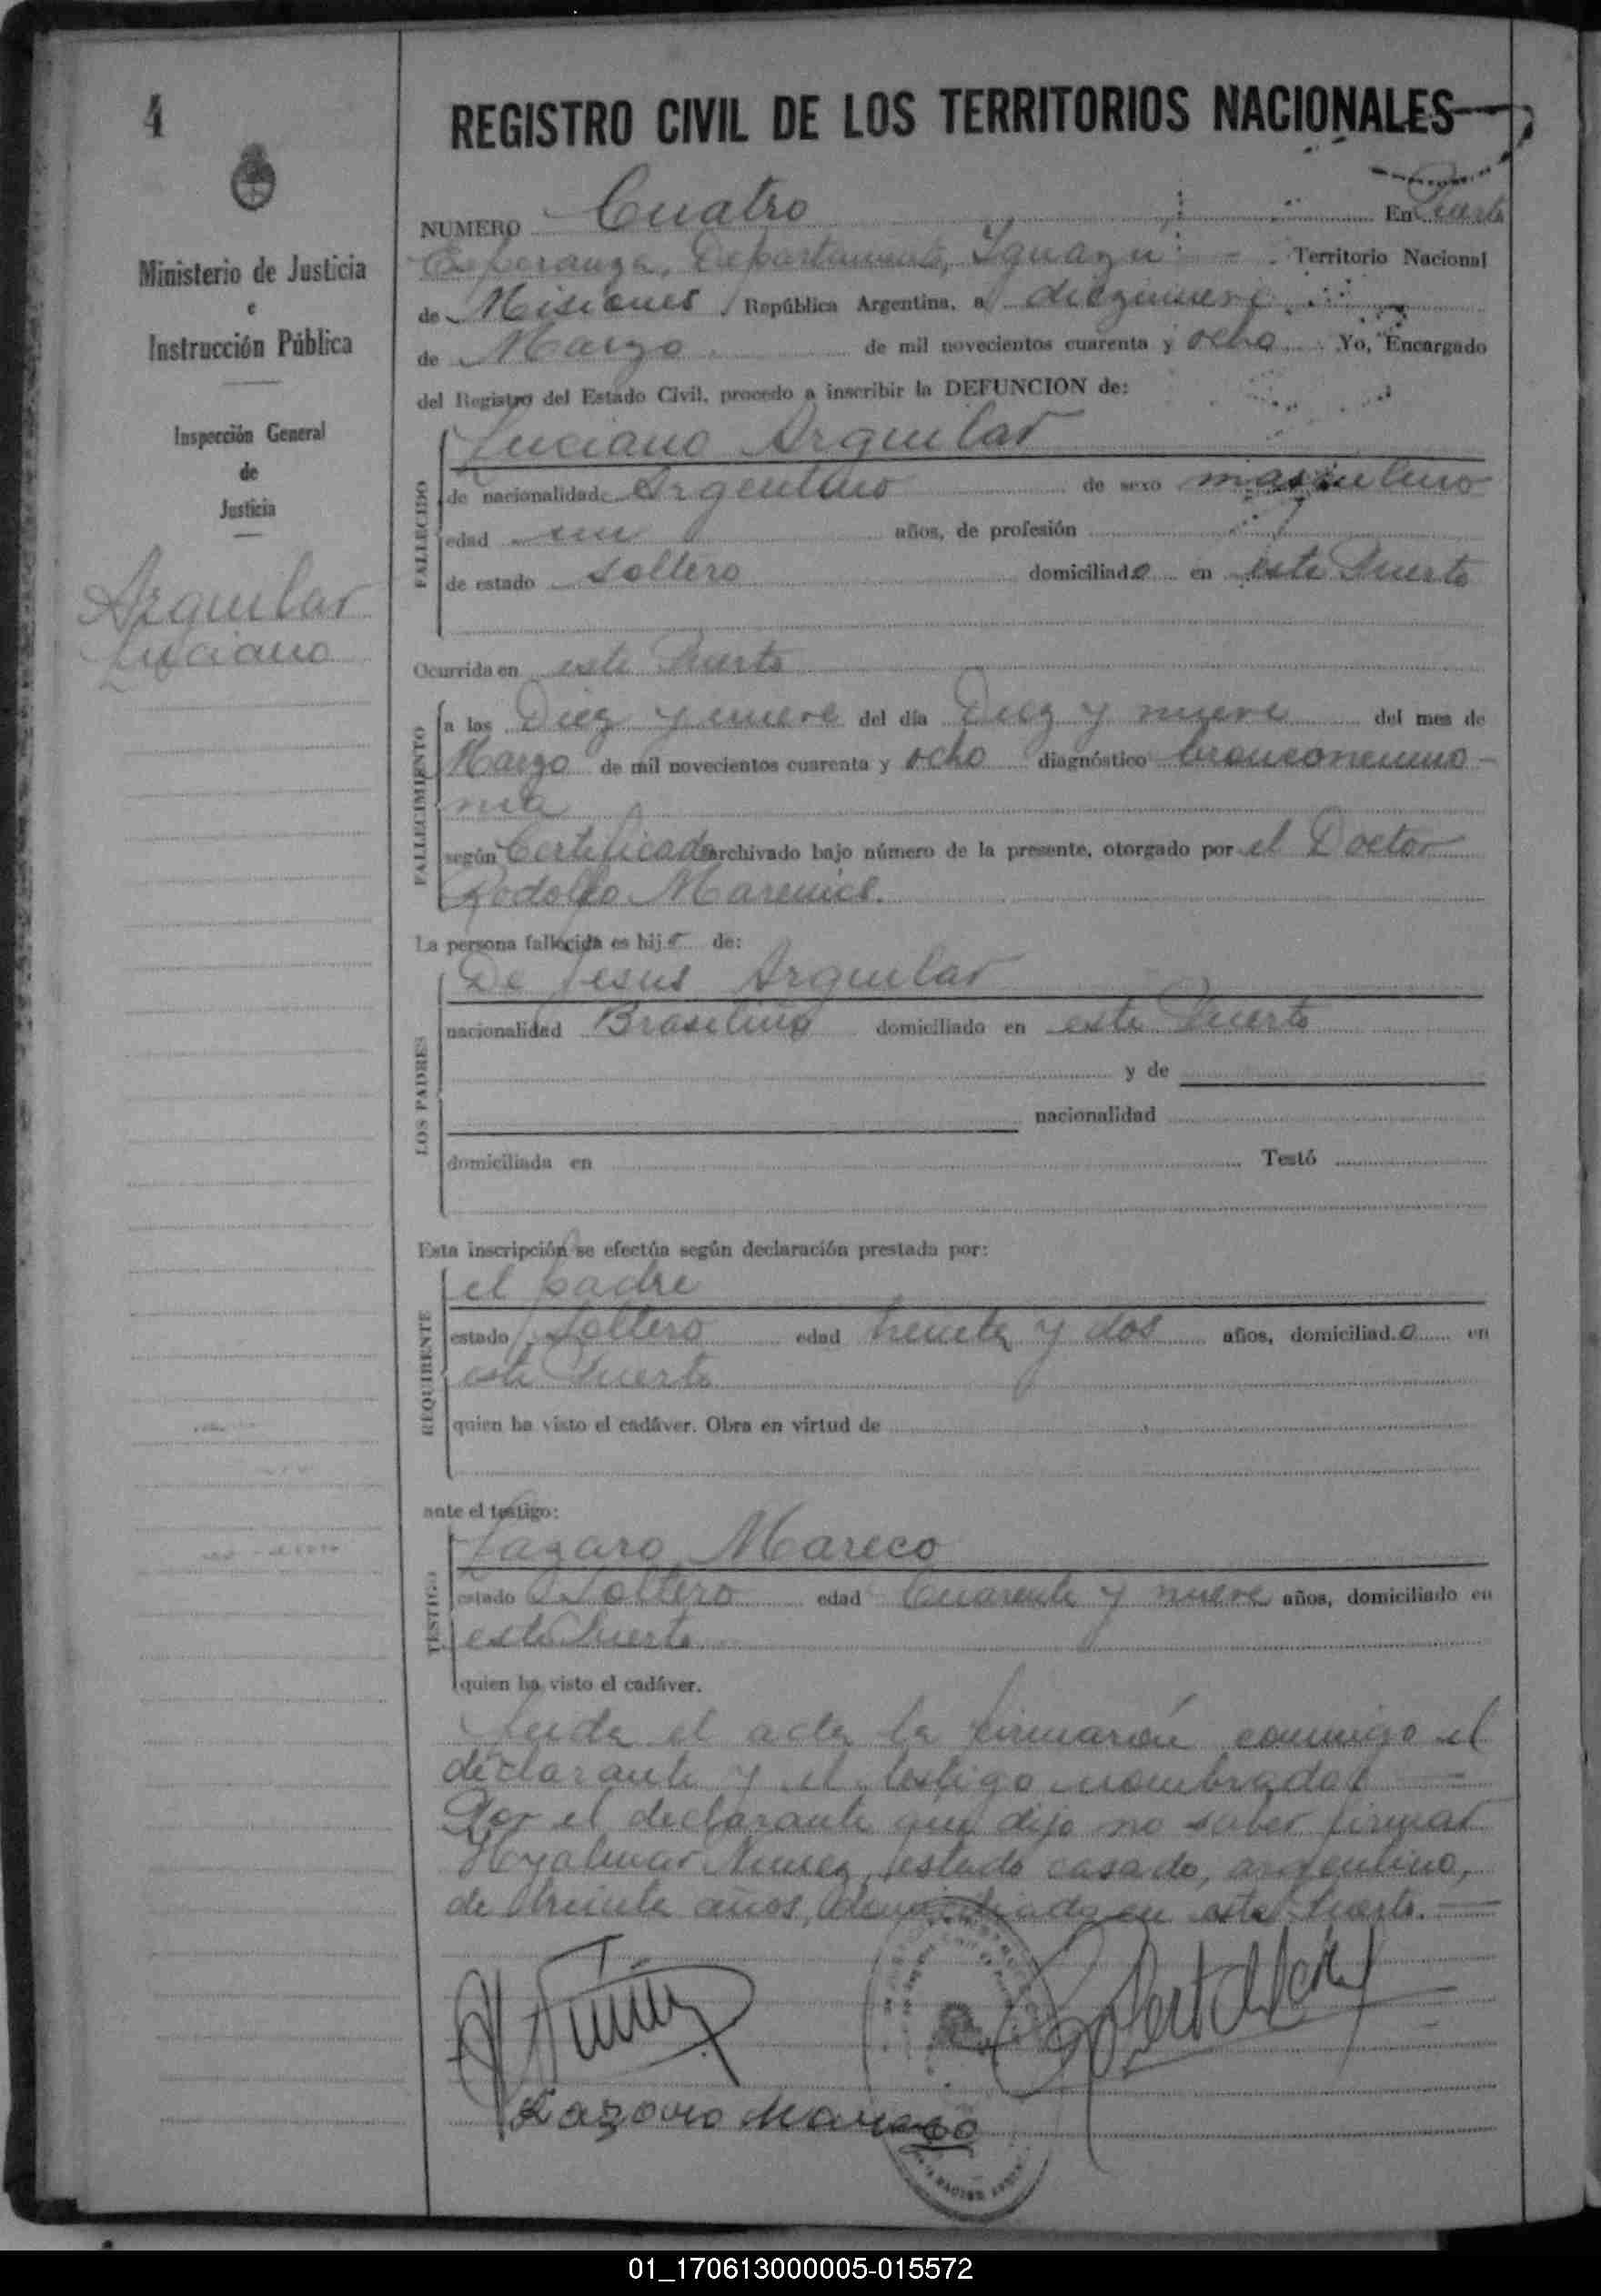 4
REGISTRO CIVIL DE LOS TERRITORIOS NACIONALES
Ministerio de Justicia
e
Instrucción Pública
Inspección General
de
Justicia
Arquilar
Luciano
NUMERO Cuatro En Puerto
Esperanza, Departamento, Iguazu Territorio Nacional
de Misiones República Argentina, a diezinueve
de Marzo de mil novecientos cuarenta y ocho Yo, Encargado
del Registro del Estado Civil, procedo a inscribir la DEFUNCION de:
Luciano Arquilar
FALLECIDO
de nacionalidad Argentino de sexo masculino
edad un años, de profesión
de estado soltero domiciliado en este Puerto
Ocurrida en este Puerto
FALLECIMIENTO
a las Diez y nueve del día Diez y nueve del mes de
Marzo de mil novecientos cuarenta y ocho diagnóstico bronconeumo-
nia
según Certificado archivado bajo número de la presente, otorgado por el Doctor
Rodolfo
La persona fallecida es hijo de:
De Jesus Arquilar
LOS PADRES
nacionalidad Brasilino domiciliado en este Puerto
y de
nacionalidad
domiciliada en Testó
Esta inscripción se efectúa según declaración prestada por:
el padre
REQUIRENTE
estado Soltero edad treinta y dos años, domiciliado en
este Puerto
quien ha visto el cadáver. Obra en virtud de
ante el testigo:
Lazaro Mareco
TESTIGO
estado Soltero edad Cuarenta y nueve años, domiciliado en
este Puerto
quien ha visto el cadáver.
Leida el acta la firmarón conmigo el
declarante y el testigo nombrado
Por el declarante que dijo no saber firmar
Hyalmar Nunez, estado casado, argentino,
de treinta años, domiciliado en este Puerto.
H Núñez
Lazaro Mareco
01_170613000005-015572